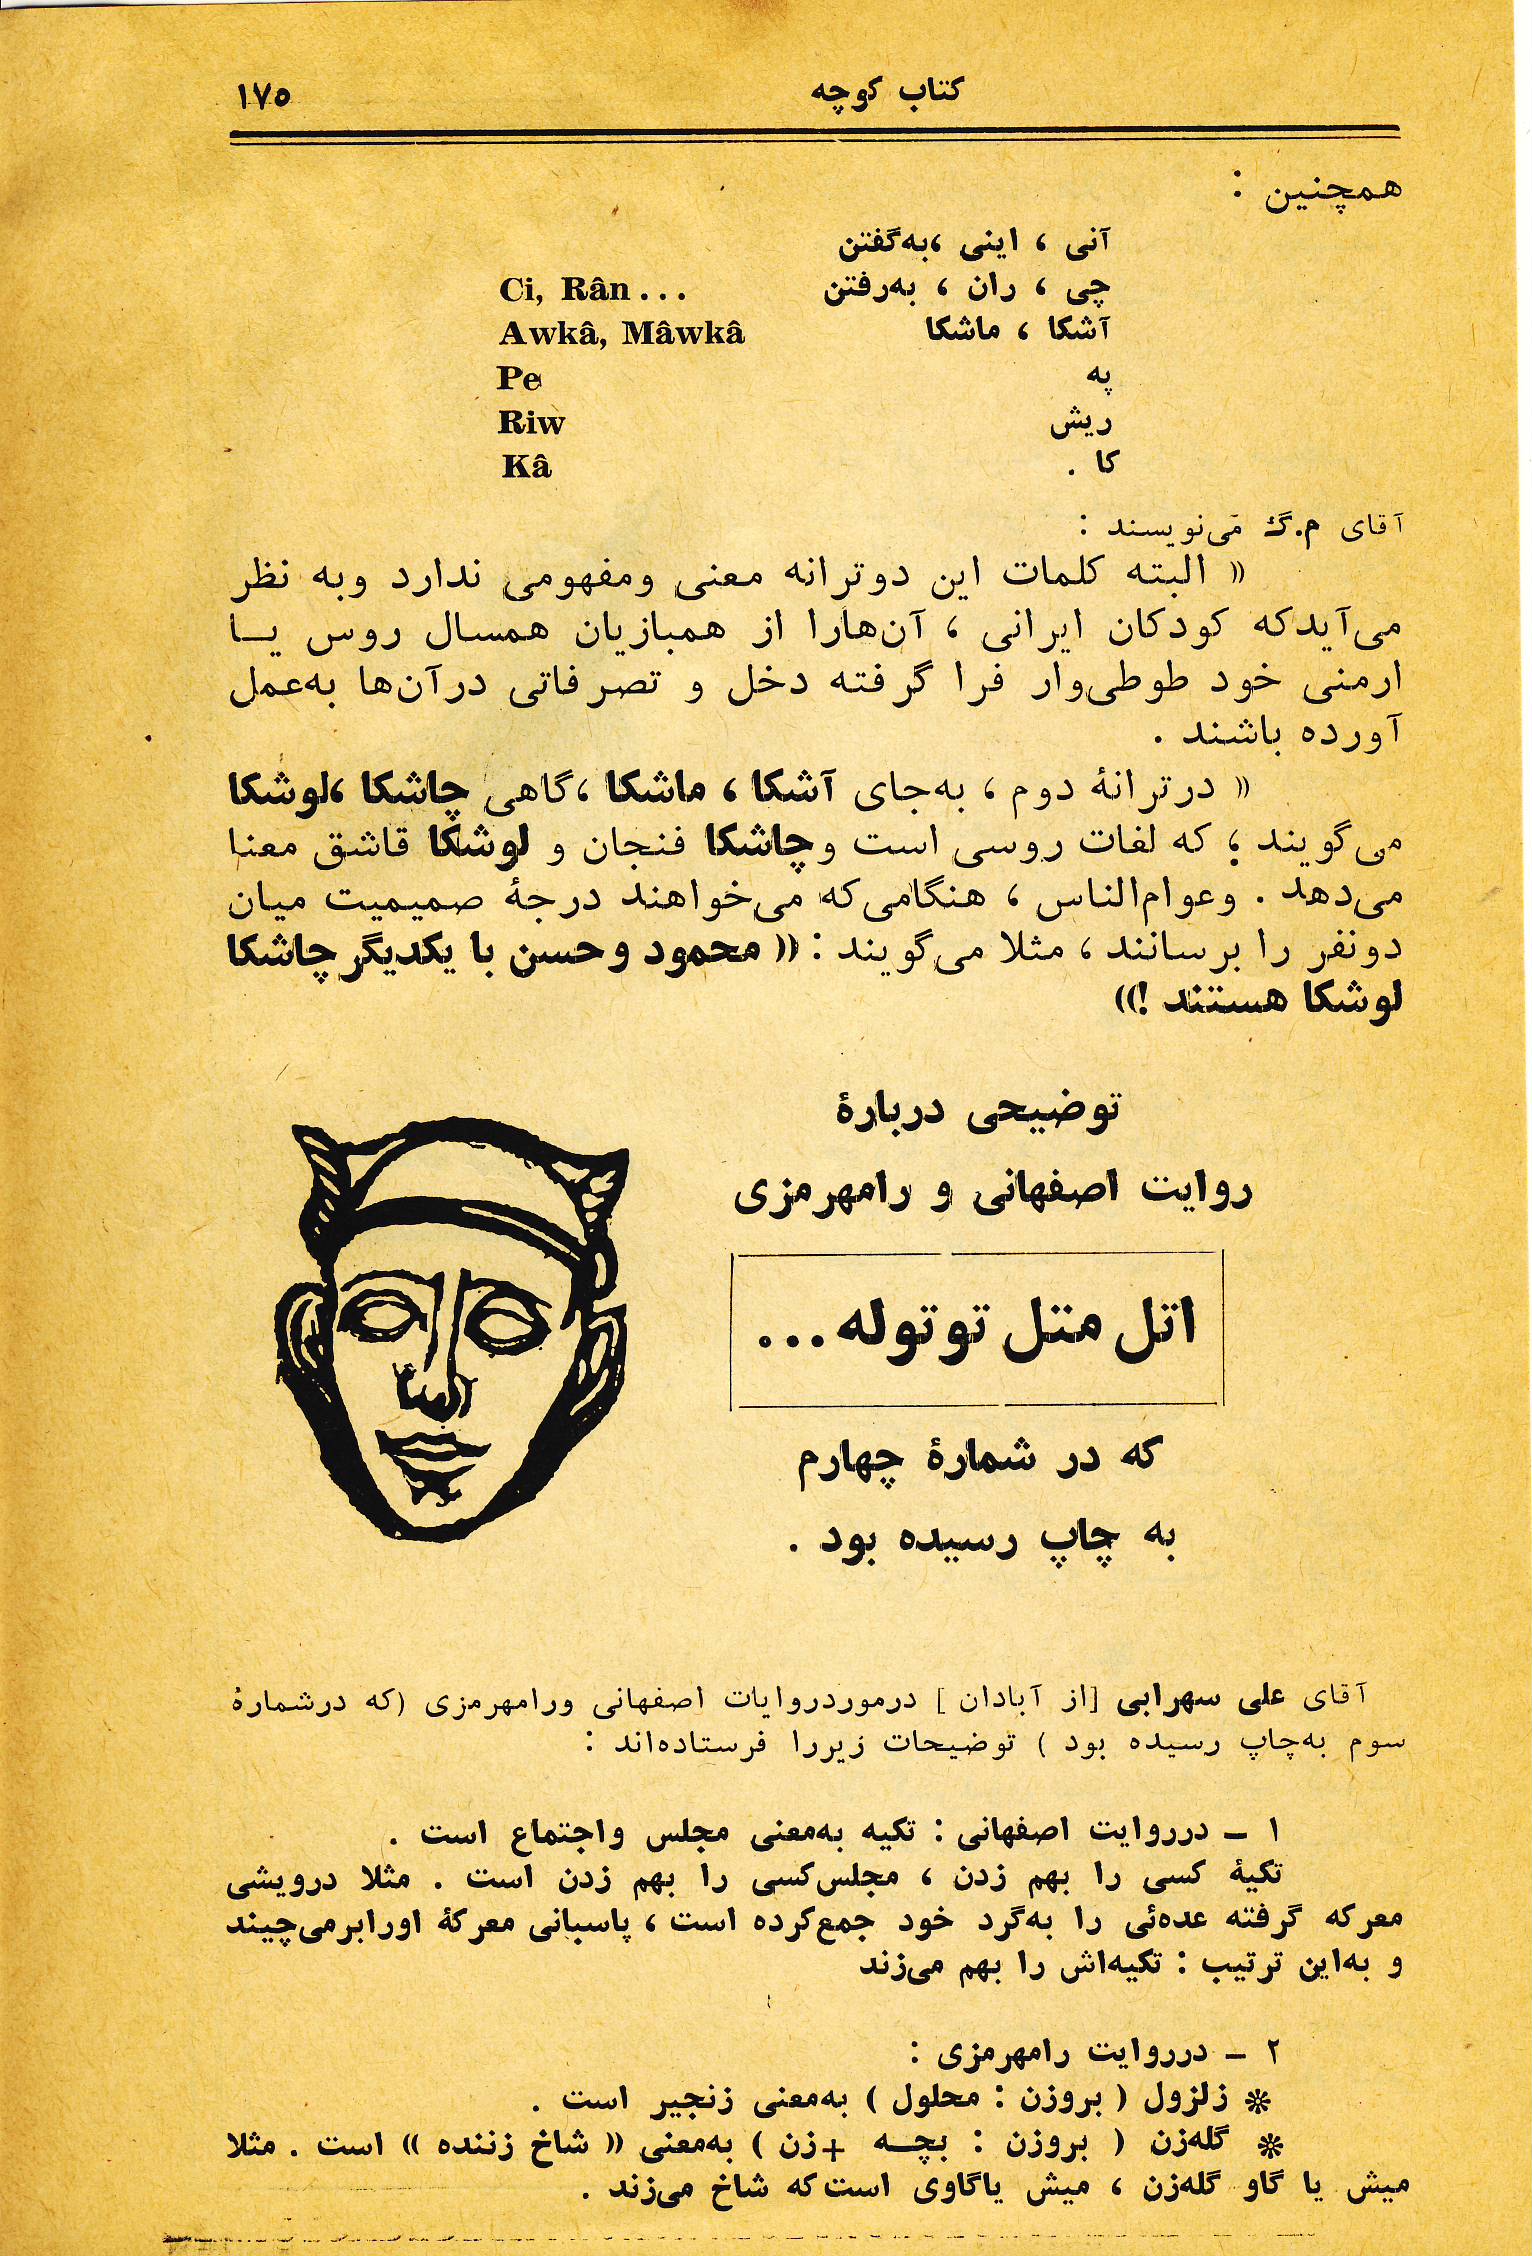 کتاب کوچه ۱۷۵
همچنین :
آنی ، اینی ،به‌گفتن
چی ، ران ، به‌رفتن Ci, Rân...
آشکا ، ماشکا Awkâ, Mâwkâ
په Pe
ریش Riw
کا . Kâ
آقای م.گ می‌نویسند :
« البته کلمات این دوترانه معنی ومفهومی ندارد وبه نظر
می‌آیدکه کودکان ایرانی ، آن‌هارا از همبازیان همسال روس یـا
ارمنی خود طوطی‌وار فرا گرفته دخل و تصرفاتی درآن‌ها به‌عمل
آورده باشند .
« درترانهٔ دوم ، به‌جای آشکا ، ماشکا ،گاهی چاشکا ،لوشکا
می‌گویند ؛ که لغات روسی است وچاشکا فنجان و لوشکا قاشق معنا
می‌دهد . وعوام‌الناس ، هنگامی‌که می‌خواهند درجهٔ صمیمیت میان
دونفر را برسانند ، مثلا می‌گویند : « محمود وحسن با یکدیگر چاشکا
لوشکا هستند !»
توضیحی دربارهٔ
روایت اصفهانی و رامهرمزی
اتل متل توتوله...
که در شمارهٔ چهارم
به چاپ رسیده بود .
آقای علی سهرابی [از آبادان ] درموردروایات اصفهانی ورامهرمزی (که درشمارهٔ
سوم به‌چاپ رسیده بود ) توضیحات زیررا فرستاده‌اند :
۱ ـ درروایت اصفهانی : تکیه به‌معنی مجلس واجتماع است .
تکیهٔ کسی را بهم زدن ، مجلس‌کسی را بهم زدن است . مثلا درویشی
معرکه گرفته عده‌ئی را به‌گرد خود جمع‌کرده است ، پاسبانی معرکهٔ اورابرمی‌چیند
و به‌این ترتیب : تکیه‌اش را بهم می‌زند
۲ ـ درروایت رامهرمزی :
* زلزول ( بروزن : محلول ) به‌معنی زنجیر است .
* گله‌زن ( بروزن : بچـه +زن ) به‌معنی « شاخ زننده » است . مثلا
میش یا گاو گله‌زن ، میش یاگاوی است‌که شاخ می‌زند .